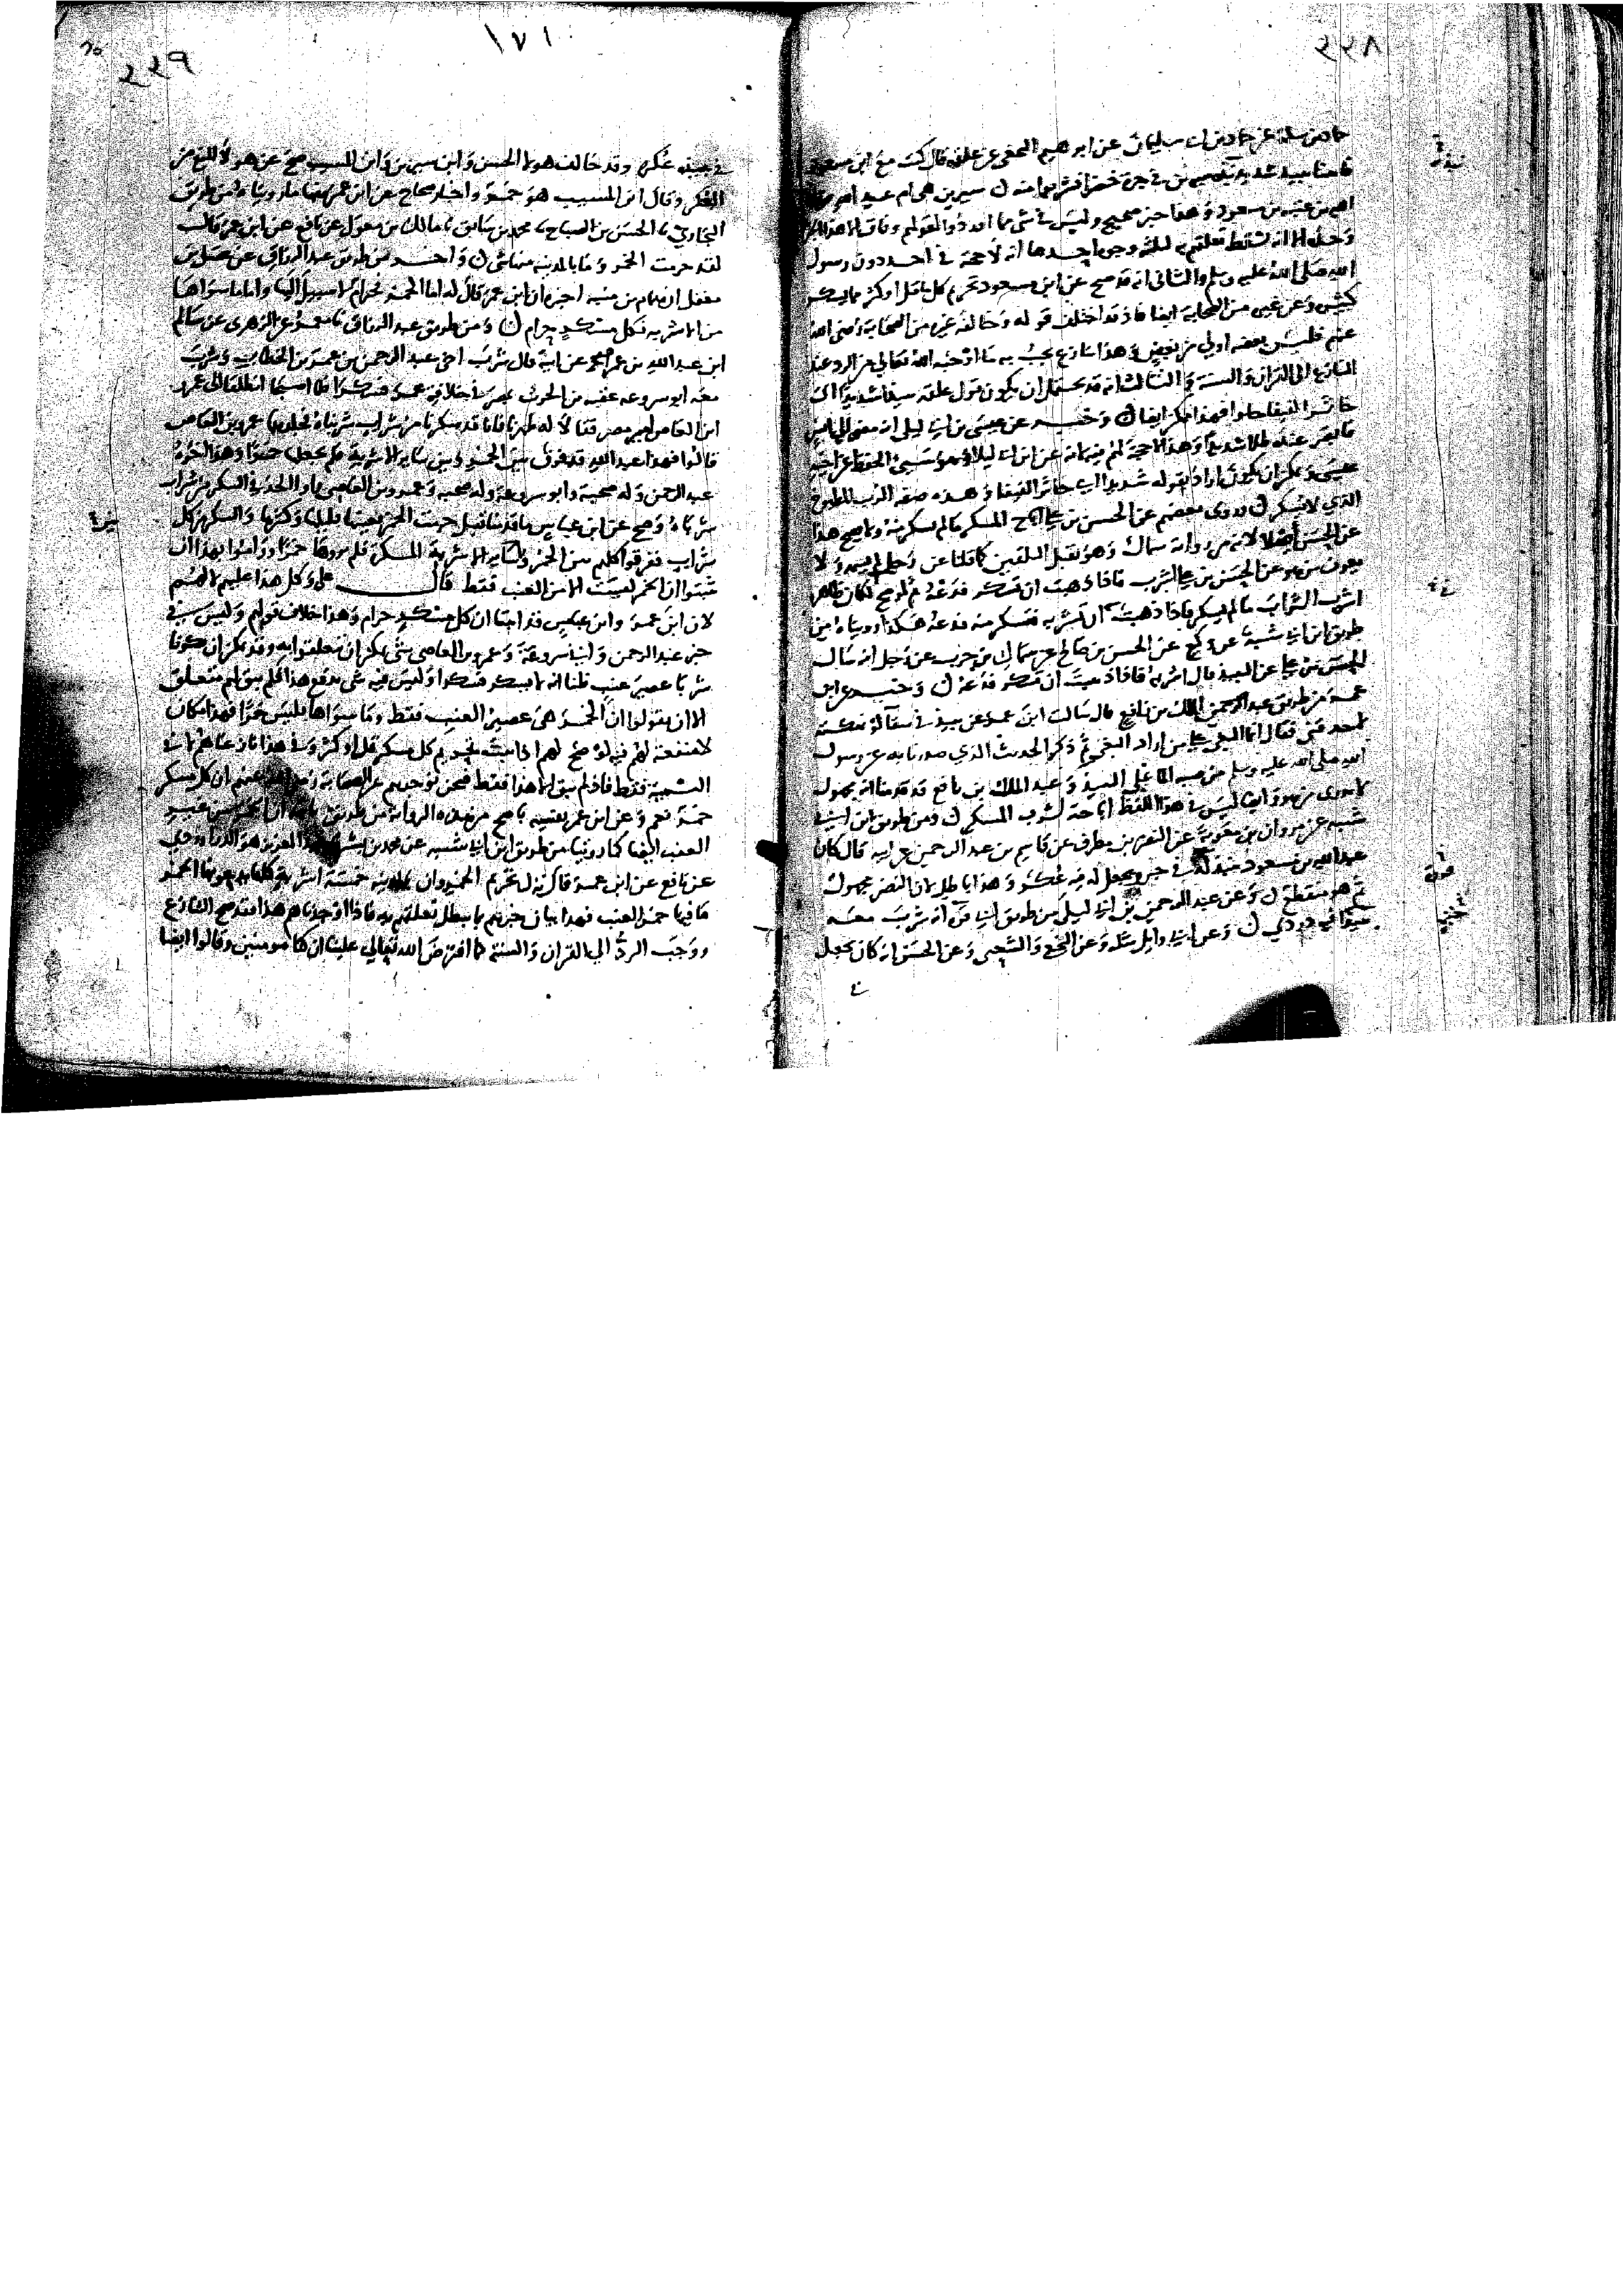 ٢٢٨
حماد بن سلمة عن حماد بن ابي سليمان عن ابرهيم النخعي عن علقمة قال كنت مع ابن مسعود
فاتينا بنبيذ شديد نبذته سيرين في جرة خضرا فشربوا منه ن سيرين هي ام
بن عتبة بن مسعود وهذا خبر صحيح وليس في شي مما اوردوا لقولهم وفاق الا هذا الخبر
وحده الا انه يسقط تعلقهم به لثلثه وجوه احدها انه لا حجة في احد دون رسول
الله صلى الله عليه وسلم والثاني انه قد صح عن ابن مسعود تحريم كل ما قل او كثر مما يسكر
وعن غيره من الصحابة ايضا فاذ قد اختلف قوله وخالفه غيره من الصحابة رضي الله
عنهم فليس بعضه اولي من بعض وهذا تنازع يجب به ما اوجبه الله تعالي من الرد عند
التنازع الى القران والسنة والثالث انه قد يحتمل ان يكون قول علقمة نبيذا شديدا اي
خاثرا لفيفا حلوا فهذا ممكن ايضا ن وخبر عن عيسى بن ابي ليلى انه مضى الي انس
فابصر عنده طلا شديدا وهذا لا حجة لهم فيه لانه عن ابن ابي ليلا وهو سيئ الحفظ عن اخيه
عيسى ويمكن ان يكون اراد بقوله شديدا اي خاثرا لفيفا وهذه صفة الرب المطبوخ
الذي لا يسكر ن وروى بعضهم عن الحسن بن علي المسكر ما لم يسكر منه وما صح هذا
عن الحسن لانه من رواية سماك وهو يقبل التلقين كما قلنا عن رجل لم يسمه ولا
يعرف من هو عن الحسن بن علي اشرب فاذا رهبت ان تسكر فدعه ثم لو صح لكان ظاهره
اشرب الشراب ما لم يسكر فاذا رهبت ان تشربه فتسكر منه فدعه هكذا رويناه من
طريق ابن ابي شيبة عن وكيع عن الحسن بن صالح عن سماك بن حرب عن رجل انه سال
الحسن بن علي عن النبيذ قال اشربه فاذا رهبت ان تسكر فدعه ن وخبر عن ابن
عمر من طريق عبد الملك بن نافع قال سالت ابن عمر عن نبيذ في سقا
فقال انما البغي علي من اراد البغي ثم ذكر الحديث الذي صدرنا به عن رسول
الله صلى الله عليه وسلم من صبه الما علي النبيذ وعبد الملك بن نافع قد قدمنا انه مجهول
لا يدرى من هو وايضا ليس في هذا اللفظ اباحة لشرب المسكر ن ومن طريق ابن ابي
شيبه عن مروان بن معوية عن النضر بن مطرف عن قاسم بن عبد الرحمن عن ابيه قال كان
عبد الله بن مسعود ينبذ له في جر ويجعل له فيه عكر وهذا باطل لان النضر مجهول
ثم هو منقطع ن وعن عبد الرحمن بن ابي ليلى من طريق ابي فروة انه شرب معه
نبيذا في دردي ن وعن ابي وايل مثله وعن النخعي والشعبي وعن الحسن انه كان يجعل
٢٢٩
١٧١
في نبيذه عكر وقد خالف هولا الحسن وابن سيرين وابن المسيب صح عن هولا المنع من
العكر وقال ابن المسيب هو خمر واخبار صحاح عن ابن عمر منها ما رويناه من طريق
البخاري نا الحسن بن الصباح نا محمد بن سابق نا مالك بن مغول عن نافع عن ابن عمر قال
لقد حرمت الخمر وما بالمدينه منها شي ن واخر من طريق عبد الرزاق عن عقيل بن
معقل ان همام بن منبه اخبره ان ابن عمر قال له اما الخمر فحرام لا سبيل اليها واما ما سواها
من الاشربه فكل مسكر حرام ن ومن طريق عبد الرزاق نا معمر عن الزهري عن سالم
ابن عبد الله بن عمر عن ابيه قال شرب اخي عبد الرحمن بن عمر بن الخطاب وشرب
معه ابو سروعه عقبه بن الحرث بمصر في خلافة عمر فسكرا فلما اصبحا انطلقا الى عمرو
ابن العاص امير مصر فقالا له طهرنا فانا قد سكرنا من شراب شربناه فجلدهما عمرو بن العاص
قالوا فهذا عبد الله قد فرق بين الخمر وبين ساير الاشربة فلم يجعلها خمرا وهذا اخوه
عبد الرحمن وله صحبة وابو سروعة وله صحبه وعمرو بن العاصي راوا الحد في السكر من شراب
شرباه وصح عن ابن عباس ما قدمنا قبل حرمت الخمر بعينها قليلها وكثيرها والسكر من كل
شراب ففرقوا كلهم بين الخمر وساير الاشربة المسكرة فلم يروها خمرا وراموا بهذا ان
يثبتوا ان الخمر ليست الا من العنب فقط قال علي وكل هذا عليهم لا لهم
لان ابن عمر وابن عباس قد اثبتا ان كل مسكر حرام وهذا خلاف قولهم وليس في
خبر عبد الرحمن وابي سروعة وعمرو بن العاصي شي يمكن ان يتعلقوا به وقد يمكن ان يكونا
شربا عصير عنب ظنا انه لا يسكر فسكرا وليس فيه شي يدفع هذا فلم يبق لهم متعلق
الا ان يقولوا ان الخمر هي عصير العنب فقط وما سواها فليس خمرا فهذا مكان
لا منفعة لهم فيه لو صح لهم اذا ثبت تحريم كل مسكر قل او كثر وفي هذا نازعناهم لا في
التسمية فقط فاذ لم يبق الا هذا فقط فنحن نوجدهم عن الصحابة رضي الله عنهم ان كل مسكر
خمر نعم وعن ابن عمر بعينه باصح من هذه الرواية من طريق
العنب ايضا كما روينا من طريق ابن ابي شيبه عن محمد بن بشر عبد العزيز هو الدراوردي
عن نافع عن ابن عمر قال نزل تحريم الخمر وان بالمدينه خمسة اشربة كلها يدعونها الخمر
ما فيها خمر العنب فهذا بيان خبرهم بما يبطل تعلقهم به فاذا اوجدناهم هذا فقد صح التنازع
ووجب الرد الي القران والسنة كما افترض الله تعالي علينا ان كنا مومنين وقالوا ايضا